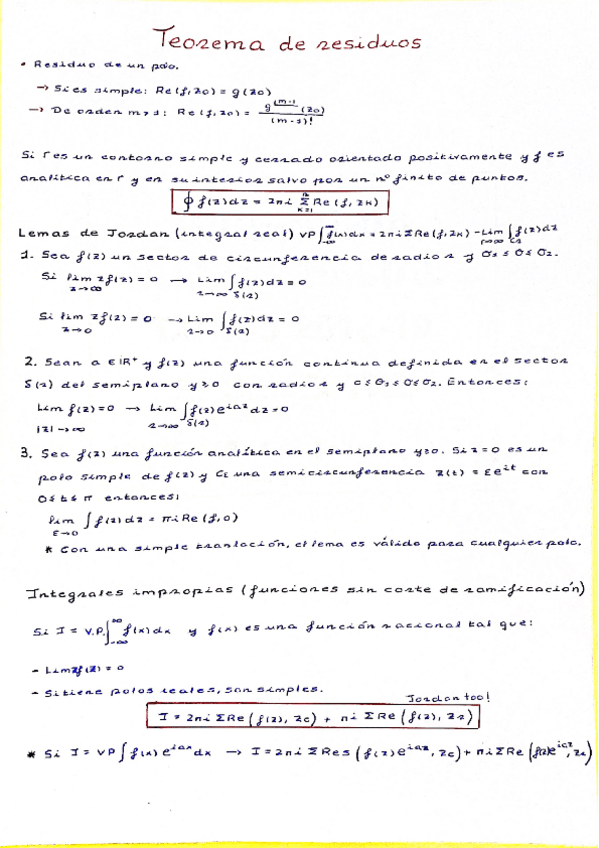 Teorema de residuos
• Residuo de un polo.
→ Si es simple: Re(f, z0) = g(z0)
→ De orden m>1: Re(f, z0) = g^(m-1)(z0) / (m-1)!
Si Γ es un contorno simple y cerrado orientado positivamente y f es
analítica en Γ y en su interior salvo por un nº finito de puntos.
∮ f(z)dz = 2πi Σ_{k=1}^{n} Re(f, zk)
Lemas de Jordan (integral real) VP∫_{-∞}^{∞} f(x)dx = 2πi Σ Re(f, zk) - Lim_{r→∞} ∫_{Cr} f(z)dz
1. Sea f(z) un sector de circunferencia de radio r y θ1 ≤ θ ≤ θ2.
Si lim_{z→∞} zf(z) = 0 → Lim_{r→∞} ∫_{S(r)} f(z)dz = 0
Si lim_{z→0} zf(z) = 0 → Lim_{r→0} ∫_{S(r)} f(z)dz = 0
2. Sean a ∈ ℝ⁺ y f(z) una función continua definida en el sector
S(r) del semiplano y≥0 con radio r y 0 ≤ θ1 ≤ θ ≤ θ2. Entonces:
Lim_{|z|→∞} f(z) = 0 → Lim_{r→∞} ∫_{S(r)} f(z)e^{iaz}dz = 0
3. Sea f(z) una función analítica en el semiplano y≥0. Si z=0 es un
polo simple de f(z) y Cε una semicircunferencia z(t) = εe^{it} con
0 ≤ t ≤ π entonces:
lim_{ε→0} ∫ f(z)dz = πi Re(f, 0)
* Con una simple translación, el lema es válido para cualquier polo.
Integrales impropias (funciones sin corte de ramificación)
Si I = V.P.∫_{-∞}^{∞} f(x)dx y f(x) es una función racional tal que:
- Lim zf(z) = 0
- Si tiene polos reales, son simples.
Jordan too!
I = 2πi Σ Re(f(z), zc) + πi Σ Re(f(z), zr)
* Si I = VP∫ f(x)e^{iax}dx → I = 2πi Σ Res(f(z)e^{iaz}, zc) + πi Σ Re(f(z)e^{iaz}, zr)